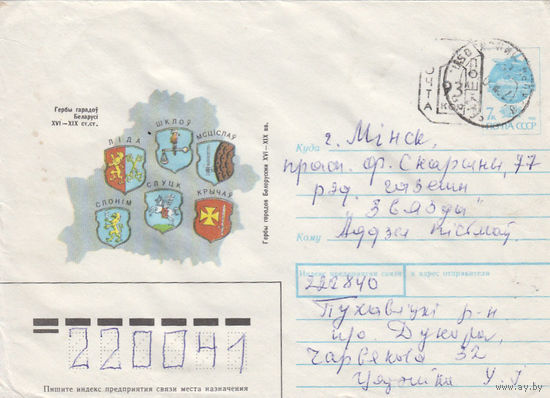 Гербы гарадоў
Беларусі
XVI–XIX ст.ст.
ШКЛОЎ
ЛІДА
МСЦІСЛАЎ
СЛОНІМ
СЛУЦК
КРЫЧАЎ
Гербы городов Белоруссии XVI–XIX вв.
ПОЧТА
7 к
ПОЧТА СССР
Куда
г. Мінск,
прасп. ф. Скарыны, 77
рэд. газеты
"Звязды"
Кому
Аддзел пісьмаў
Индекс предприятия связи и адрес отправителя
222840
Пухавіцкі р-н
п/о Дукора,
Чарвякова 32
220041
Пишите индекс предприятия связи места назначения